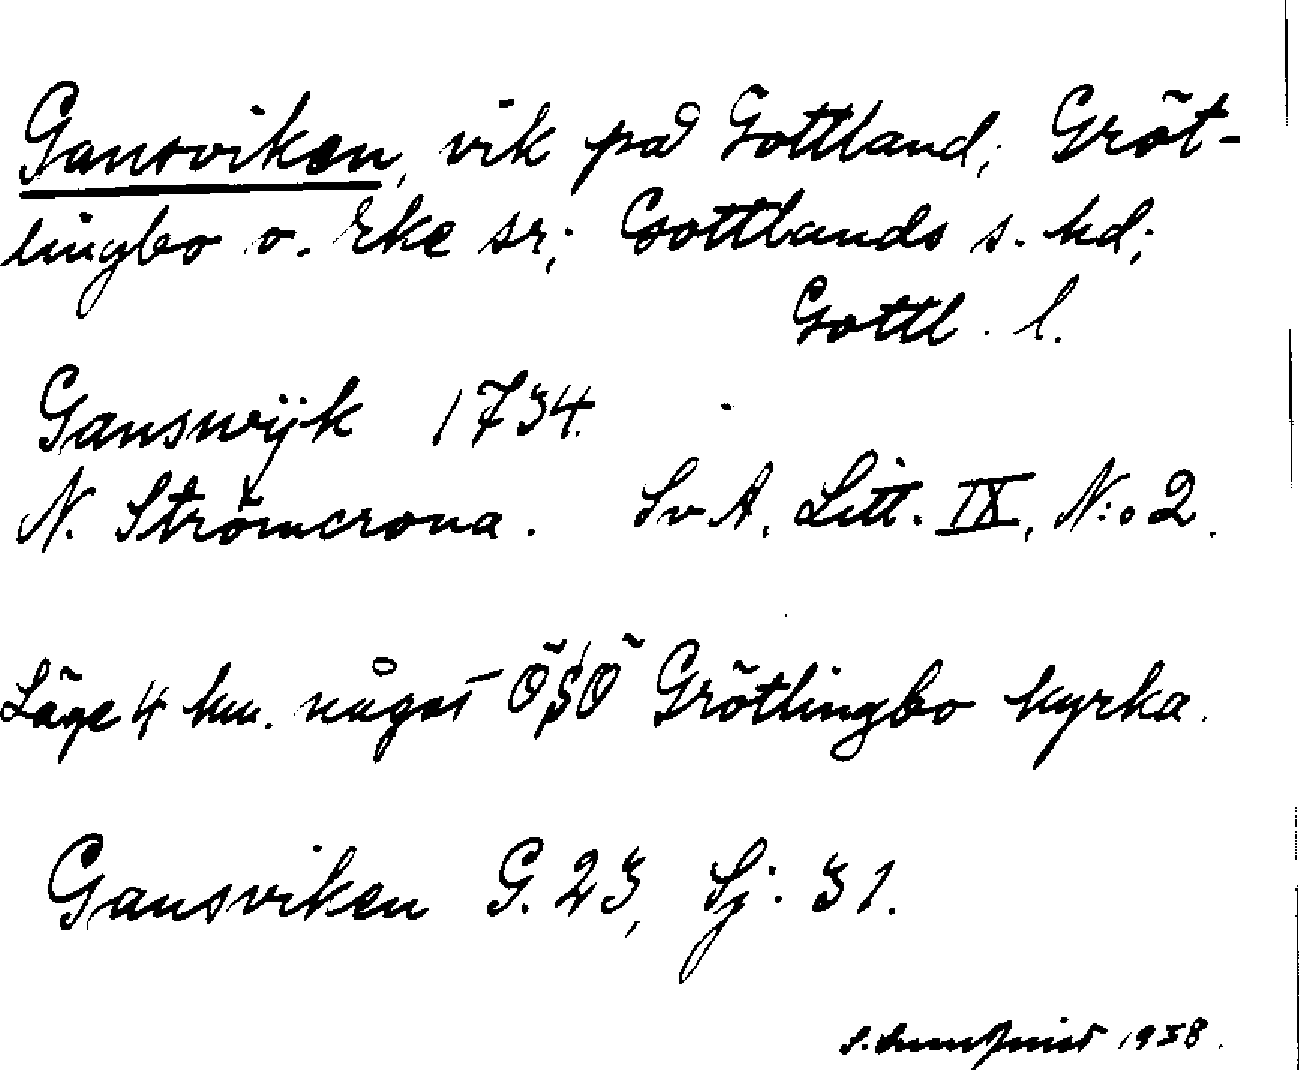 Gansviken, vik på Gottland; Gröt-
lingbo o. Eke sr; Gottlands s. hd;
Gottl. l.
Answijk 1734.
N. Strömcrona. SvA, Litt. IX, N:o 2.
Läge 4 km. något ÖSÖ Grötlingbo kyrka.
Gansviken G. 23, Sj. 31.
1938.